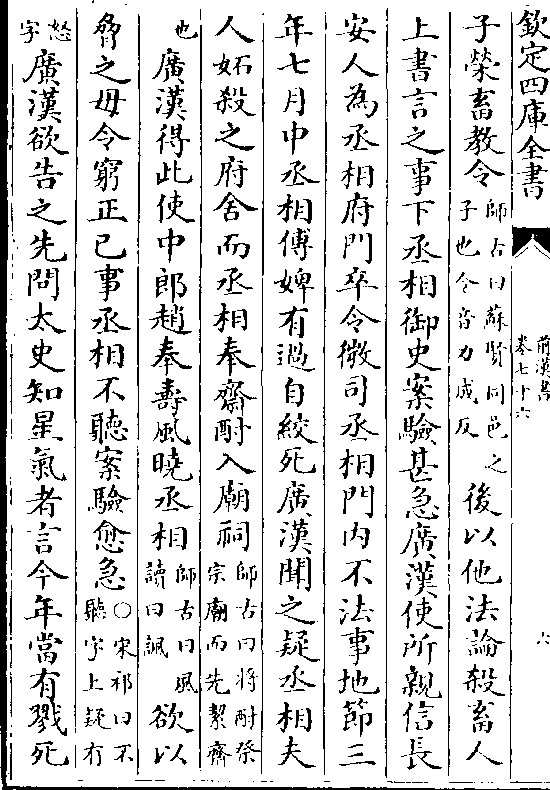 欽定四庫全書
前漢書
卷七十六
六
子榮畜教令師古曰蘇賢同邑之子也令音力成反後以他法論殺畜人
上書言之事下丞相御史案驗甚急廣漢使所親信長
安人為丞相府門卒令微司丞相門内不法事地節三
年七月中丞相傅婢有過自絞死廣漢聞之疑丞相夫
人妬殺之府舍而丞相奉齋酎入廟祠師古曰將酎祭宗廟而先絜齊
也廣漢得此使中郎趙奉壽風曉丞相師古曰風讀曰諷欲以
脅之毋令窮正已事丞相不聽案驗愈急○宋祁曰不聽字上疑有
怒字廣漢欲告之先問太史知星氣者言今年當有戮死